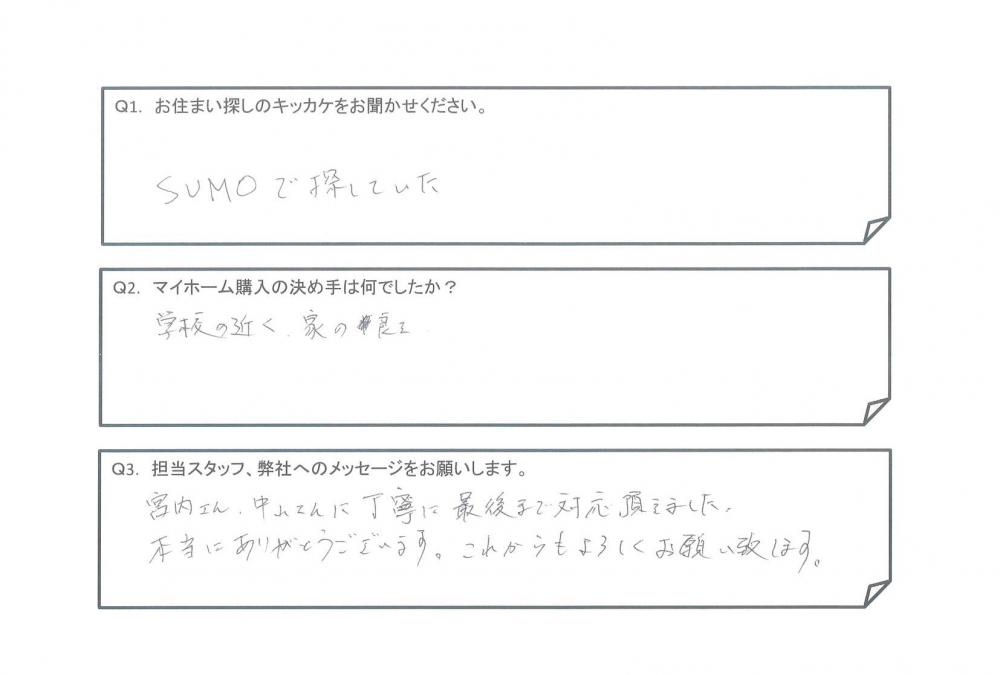 Q1. お住まい探しのキッカケをお聞かせください。
SUMOで探していた
Q2. マイホーム購入の決め手は何でしたか？
学校の近く、家の良さ
Q3. 担当スタッフ、弊社へのメッセージをお願いします。
宮内さん、中山さんに丁寧に最後まで対応頂きました。
本当にありがとうございます。これからもよろしくお願い致します。